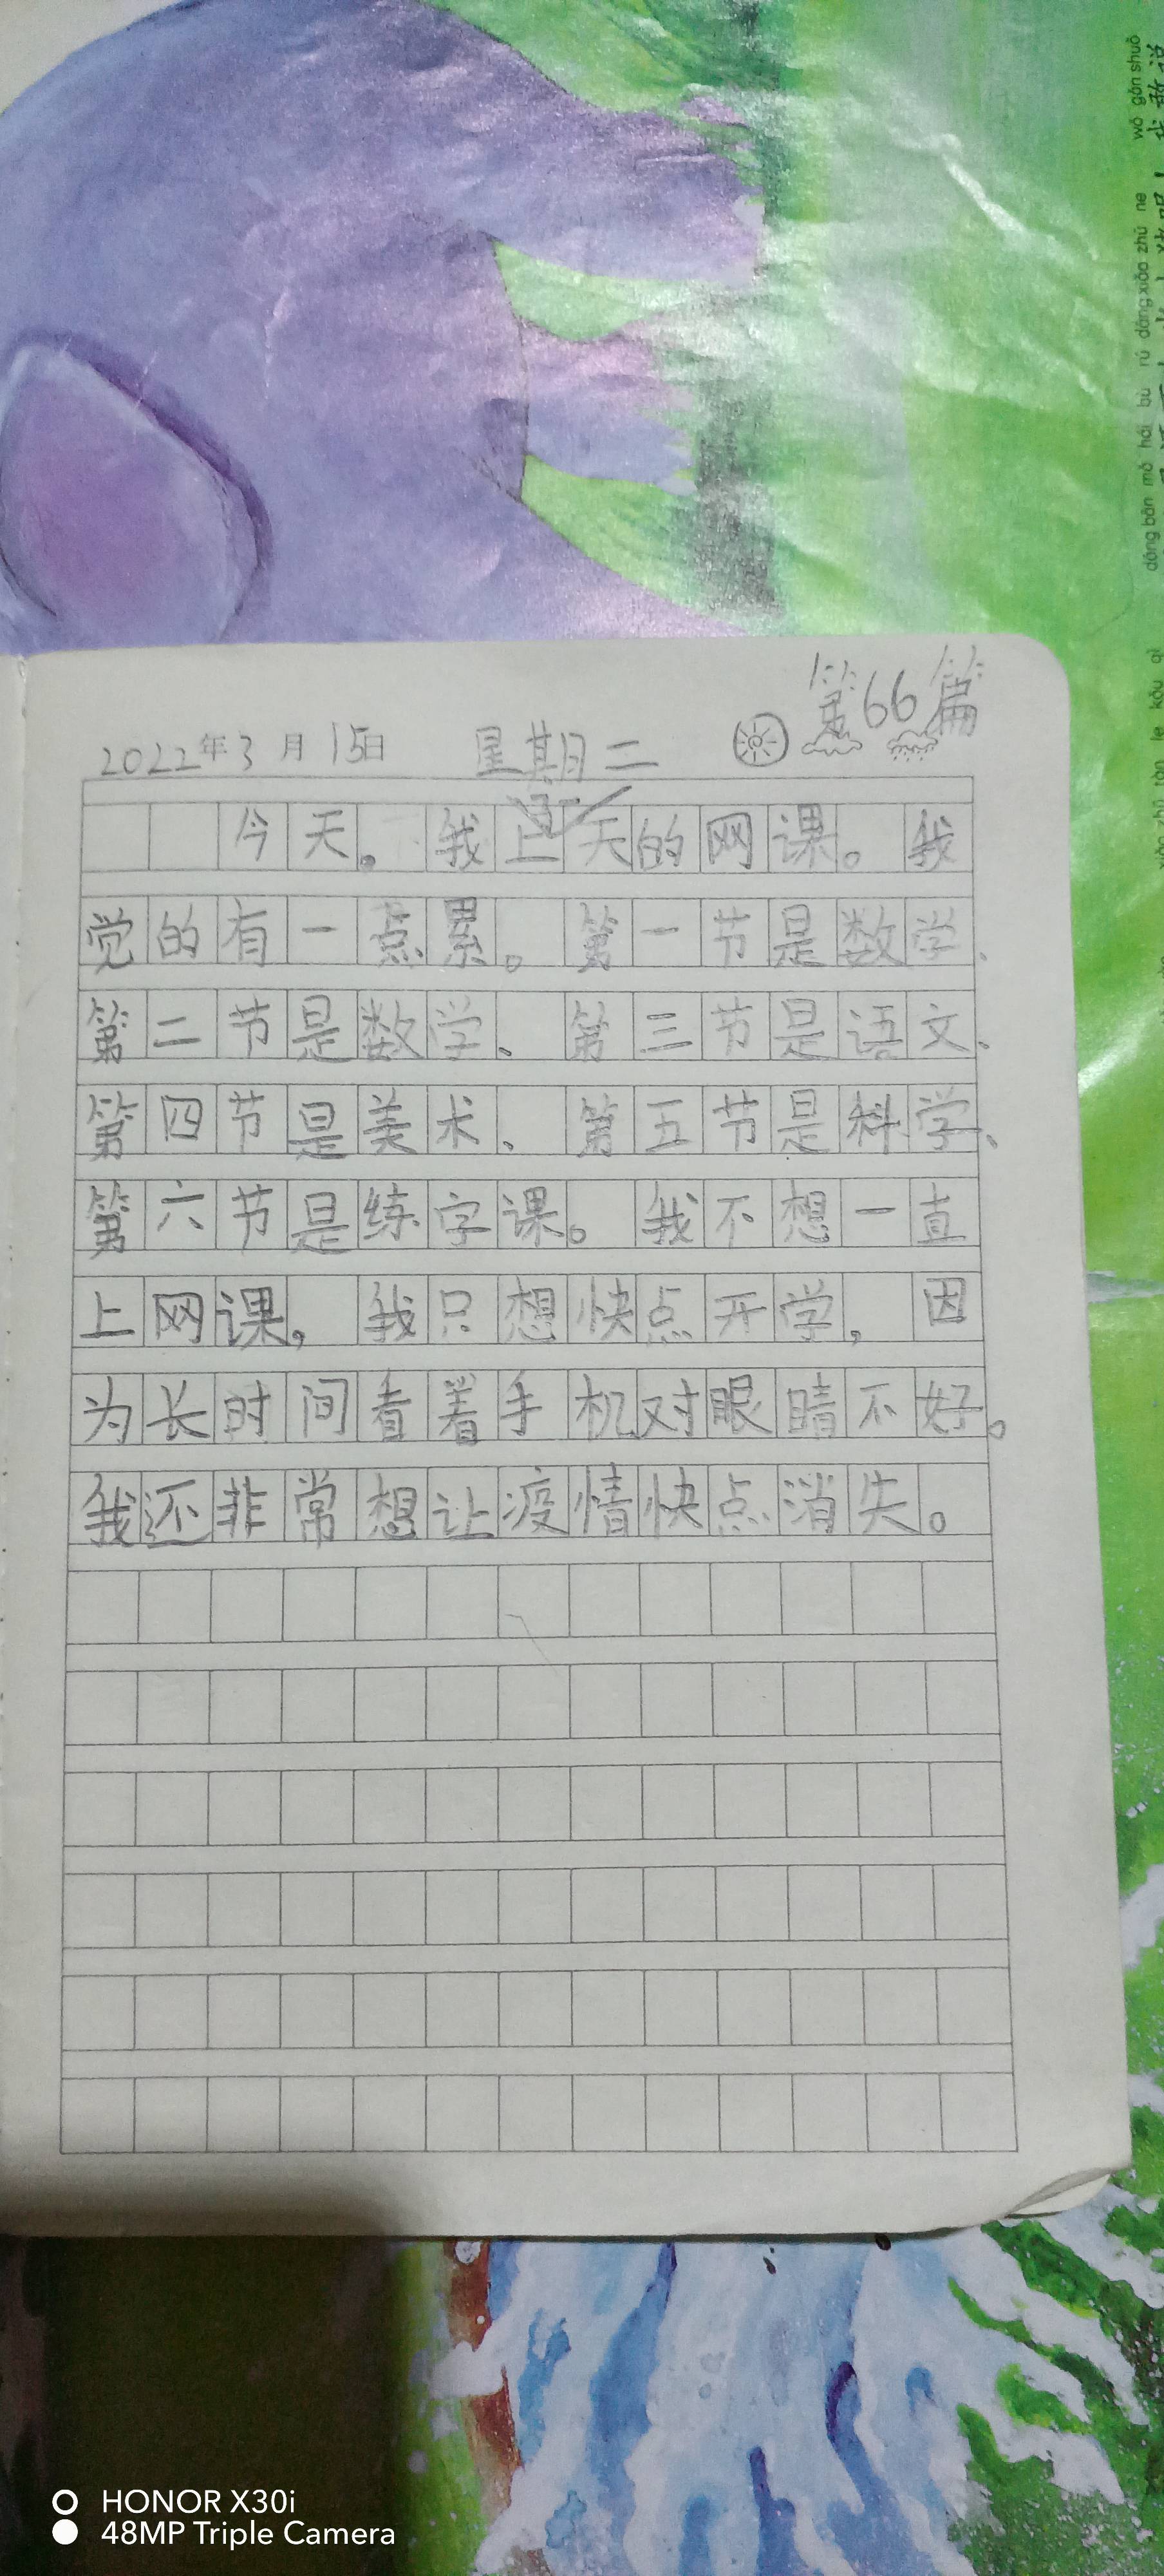 wǒ gǎn shuō
第66篇
2022年3月15日 星期二
今天。我上天的网课。我
觉的有一点累。第一节是数学、
第二节是数学、第三节是语文、
第四节是美术、第五节是科学、
第六节是练字课。我不想一直
上网课，我只想快点开学，因
为长时间看着手机对眼睛不好。
我还非常想让疫情快点消失。
HONOR X30i
48MP Triple Camera